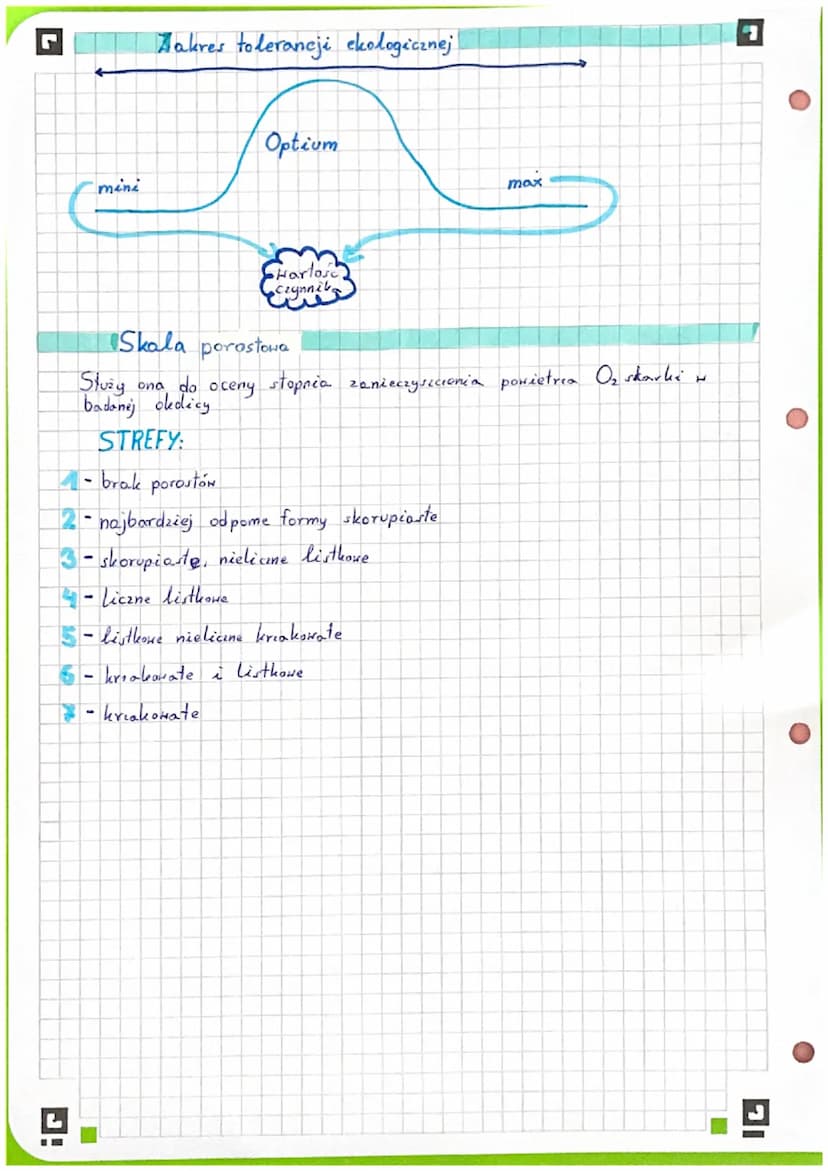 Zakres tolerancji ekologicznej
Optium
mini
max
Wartość
czynnika
Skala porostowa
Służy ona do oceny stopnia zanieczyszczenia powietrza O₂ siarki w
badanej okolicy
STREFY:
1 - brak porostów
2 - najbardziej odporne formy skorupiaste
3 - skorupiaste, nieliczne listkowe
4 - Liczne listkowe
5 - listkowe nieliczne krzakowate
6 - krzakowate i listkowe
7 - krzakowate